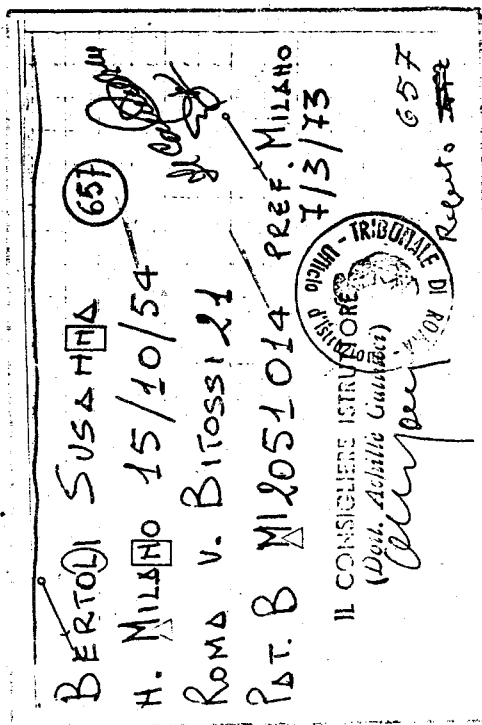 BERTOLI SUSANNA 657
N. MILANO 15/10/54
ROMA V. BITOSSI 21
PAT. B MI 2051014 PREF. MILANO
7/3/73
IL CONSIGLIERE ISTRUTTORE
(Dott. Achille Gallucci)
TRIBUNALE DI ROMA - Ufficio
Reperto 657